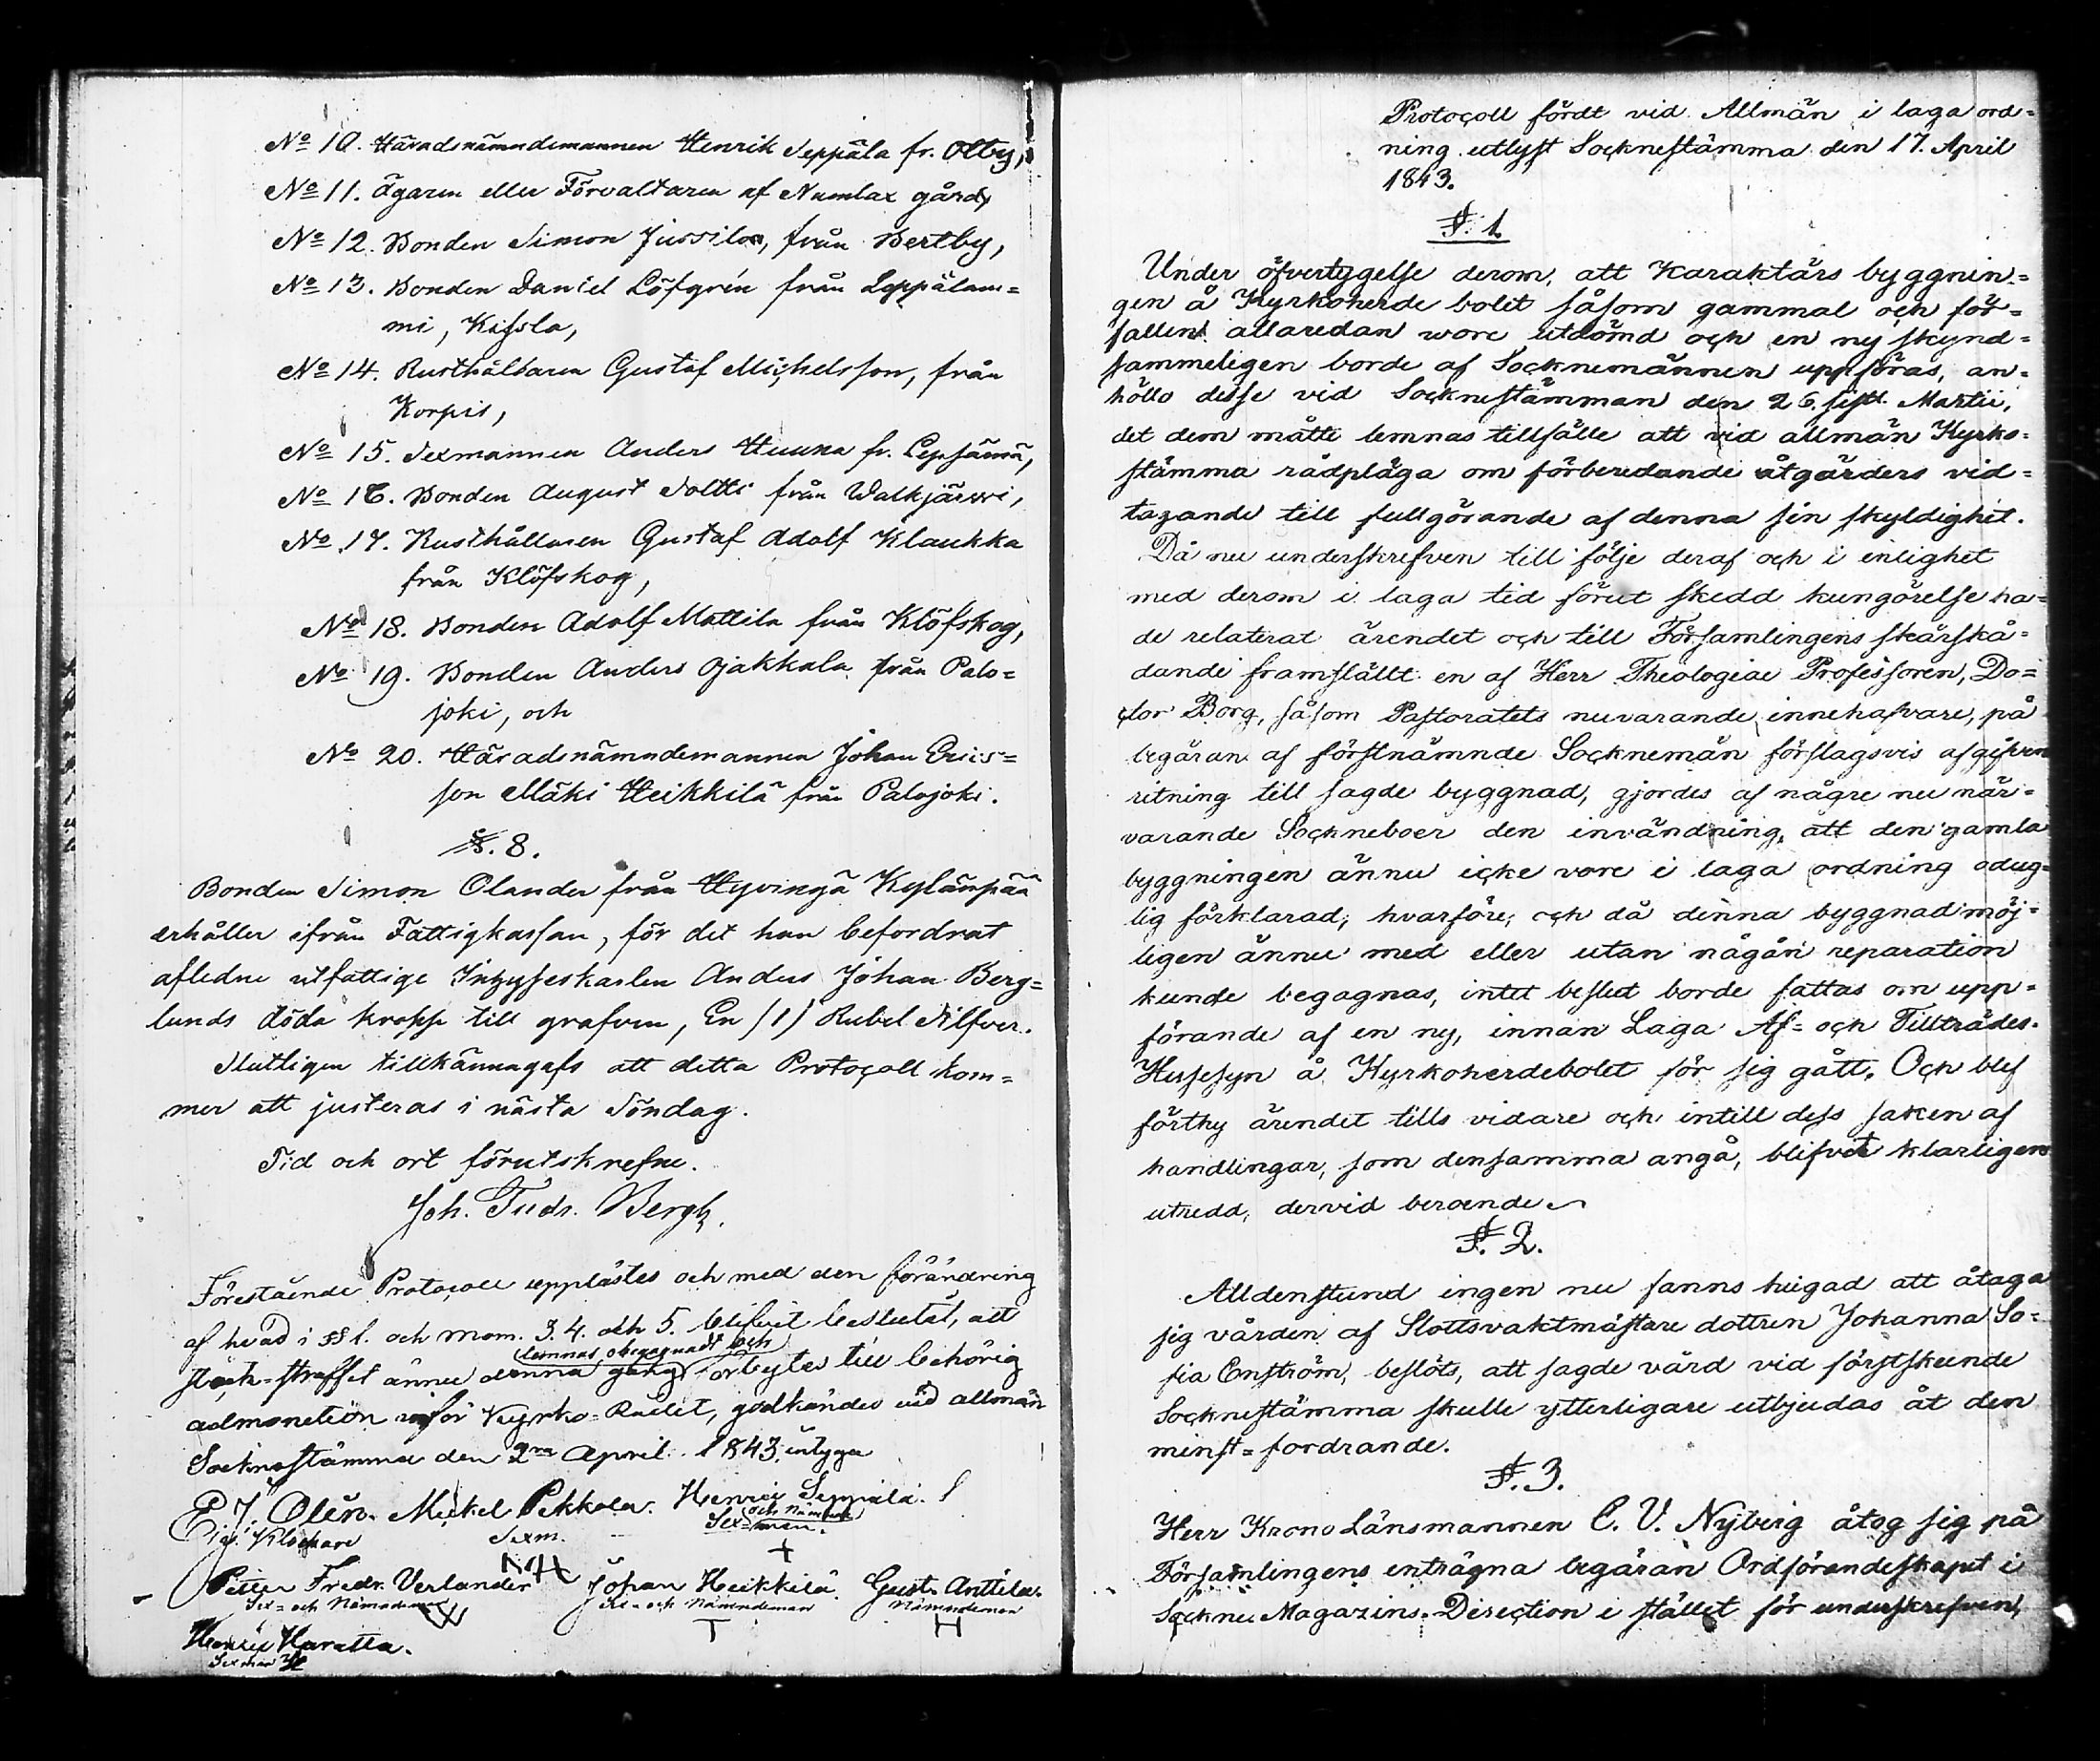 No 10. Häradsnämndemannen Henrik Seppäla fr. Olby,
No 11. ägaren eller Förvaltaren af Numlax gård,
No 12. Bonden Simon Jussila, från Bertby,
No 13. Bonden Daniel Löfgrén från Leppälam=
mi, Kissla,
No 14. Rusthållaren Gustaf Michelsson, från
Korpis,
No 15. Sexmannen Anders Huuna fr. Lepsämä,
No 16. Bonden August Soltti från Walkjärwi,
No 17. Rusthållaren Gustaf Adolf Klaukka
från Klöfskog,
No 18. Bonden Adolf Mattila från Klöfskog,
No 19. Bonden Anders Ojakkala från Palo=
joki, och
No 20. Häradsnämndemannen Johan Erics=
son Mäki Heikkilä från Palojoki.
§. 8.
Bonden Simon Olander från Hyvingä Kylänpää
erhåller ifrån Fattigkassan, för det han befordrat
afledne utfattige Inhyseskarlen Anders Johan Berg=
lunds döda kropp till grafven, En /1/ Rubel Silfver.
Slutligen tillkännagafs att detta Protocoll kom=
mer att justeras i nästa Söndag.
Tid och ort förutskrefne.
Joh. Fredr. Bergh.
Förestående Protocoll upplästes och med den förändring
af hvad i §§ 1. och mom. 3. 4. och 5. blifvit beslutat, att
lemnas obegagnadt och
stock-straffet ännu denna gång förbytes till behörig
admonetion inför Kyrko-Rådet, godkändes vid allmän
Socknestämma den 2dra April 1843, intyga
E. J. Olén. Mickel Pekkola. Henric Seppälä.
Klockare Sexm. Sex= och Nämndeman.
Petter Fredr. Verlander Johan Heikkilä. Gust. Anttila.
Sex- och Nämndeman Sex- och Nämndeman Nämndeman
Henric Haratta.
Sexman
Protocoll fördt vid Allmän i laga ord=
ning utlyst Socknestämma den 17. April
1843.
§. 1.
Under öfvertygelse derom, att Karaktärs byggnin=
gen å Kyrkoherde bolet såsom gammal och för=
fallen allaredan wore utdömd och en ny skynd=
sammeligen borde af Socknemännen uppföras, an=
höllo desse vid Socknestämman den 26. sistl. Martii,
det dem måtte lemnas tillfälle att vid allmän Kyrko=
stämma rådpläga om förberedande åtgärders vid=
tagande till fullgörande af denna sin skyldighet.
Då nu underskrefven till följe deraf och i enlighet
med derom i laga tid förut skedd kungörelse ha=
de relaterat ärendet och till Församlingens skärskå=
dande framställt en af Herr Theologiae Professoren, Do=
ctor Borg, såsom Pastoratets nuvarande innehafvare, på
begäran af förstnämnde Socknemän förslagsvis afgifven
ritning till sagde byggnad, gjordes af någre nu när=
varande Sockneboer den invändning, att den gamla
byggningen ännu icke vore i laga ordning odug=
lig förklarad, hvarföre, och då denna byggnad möj=
ligen ännu med eller utan någon reparation
kunde begagnas, intet beslut borde fattas om upp=
förande af en ny, innan Laga Af= och Tillträdes-
Husesyn å Kyrkoherdebolet för sig gått. Och blef
förthy ärendet tills vidare och intill dess saken af
handlingar, som densamma angå, blifvet klarligen
utredd, dervid beroende.
§. 2.
Alldenstund ingen nu fanns hugad att åtaga
sig vården af Slottsvaktmästare dottren Johanna So=
fia Enström, beslöts, att sagde vård vid förstskeende
Socknestämma skulle ytterligare utbjudas åt den
minst=fordrande.
§. 3.
Herr Krono Länsmannen C. V. Nyberg åtog sig på
Församlingens enträgna begäran Ordförandeskapet i
Sockne Magazins-Direction i stället för underskrefven,